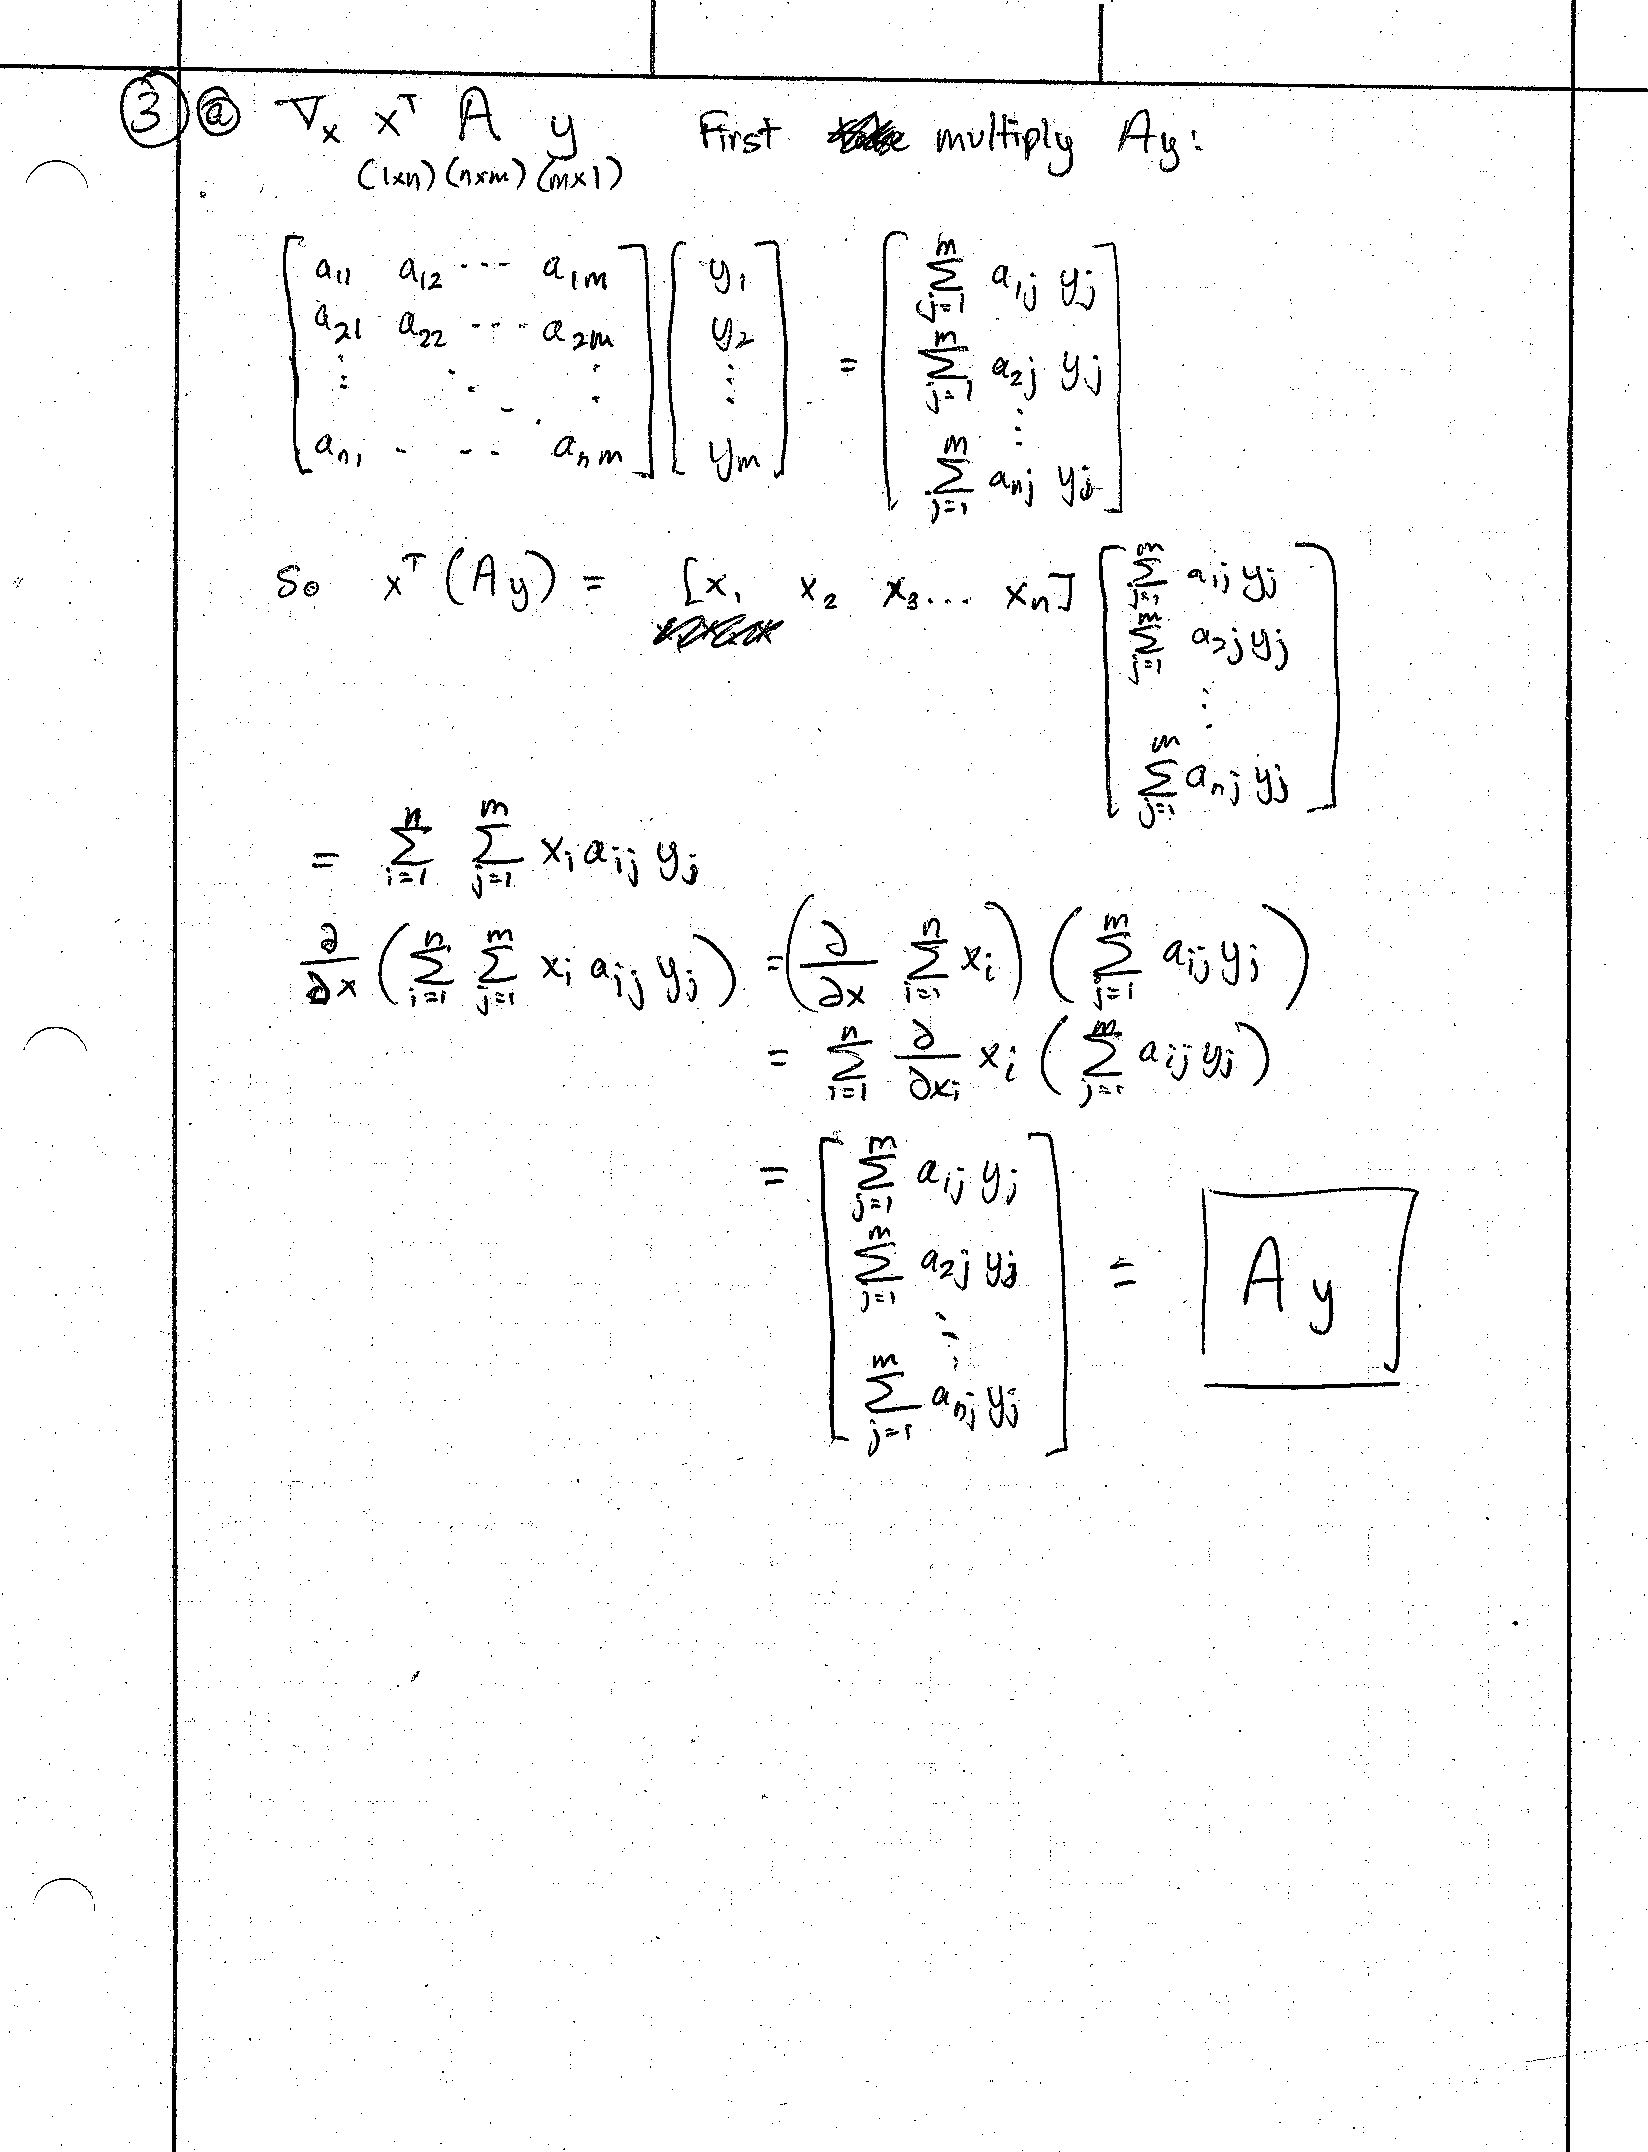 ③ ⓐ ∇ₓ xᵀ A y First multiply Ay:
(1×n) (n×m) (m×1)
[a₁₁ a₁₂ ··· a₁ₘ; a₂₁ a₂₂ ··· a₂ₘ; ⋮ ⋱ ⋮; aₙ₁ - -- aₙₘ] [y₁; y₂; ⋮; yₘ] = [∑_{j=1}^{m} a_{1j} y_j; ∑_{j=1}^{m} a_{2j} y_j; ⋮; ∑_{j=1}^{m} a_{nj} y_j]
So xᵀ(Ay) = [x₁ x₂ x₃... xₙ] [∑_{j=1}^{m} a_{1j} y_j; ∑_{j=1}^{m} a_{2j} y_j; ⋮; ∑_{j=1}^{m} a_{nj} y_j]
= ∑_{i=1}^{n} ∑_{j=1}^{m} x_i a_{ij} y_j
∂/∂x (∑_{i=1}^{n} ∑_{j=1}^{m} x_i a_{ij} y_j) = (∂/∂x ∑_{i=1}^{n} x_i) (∑_{j=1}^{m} a_{ij} y_j)
= ∑_{i=1}^{n} ∂/∂x_i x_i (∑_{j=1}^{m} a_{ij} y_j)
= [∑_{j=1}^{m} a_{1j} y_j; ∑_{j=1}^{m} a_{2j} y_j; ⋮; ∑_{j=1}^{m} a_{nj} y_j] = Ay